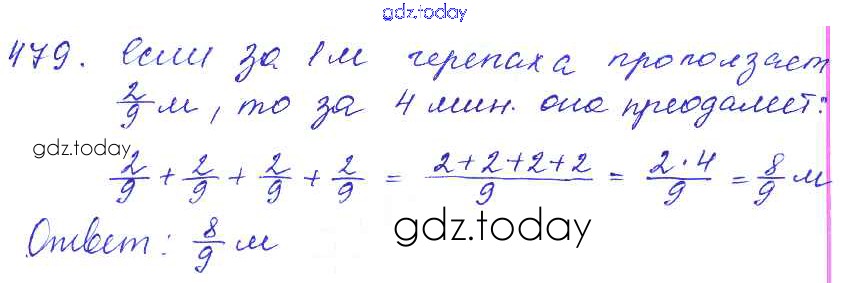 gdz.today
479. Если за 1 м черепаха проползает
2/9 м, то за 4 мин. она преодалеет:
gdz.today
2/9 + 2/9 + 2/9 + 2/9 = 2+2+2+2/9 = 2·4/9 = 8/9 м
Ответ: 8/9 м
gdz.today